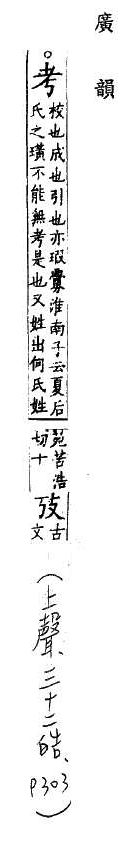 廣韻
○考
校也成也引也亦瑕釁淮南子云夏后
氏之璜不能無考是也又姓出何氏姓
苑苦浩
切十
攷
古
文
(上聲、三十二皓、P303)